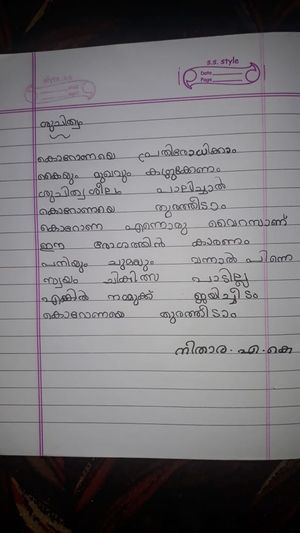 s.s. style
Date
Page
ശുചിത്വം
കൊറോണയെ പ്രതിരോധിക്കാം
കൈയും മുഖവും കഴുകേണം
ശുചിത്വശീലം പാലിച്ചാൽ
കൊറോണയെ തുരത്തീടാം
കൊറോണ എന്നൊരു വൈറസാണ്
ഈ രോഗത്തിൻ കാരണം
പനിയും ചുമയും വന്നാൽ പിന്നെ
സ്വയം ചികിത്സ പാടില്ല
എങ്കിൽ നമുക്ക് ജയിച്ചീടാം
കൊറോണയെ തുരത്തീടാം
നിതാര. എ. കെ